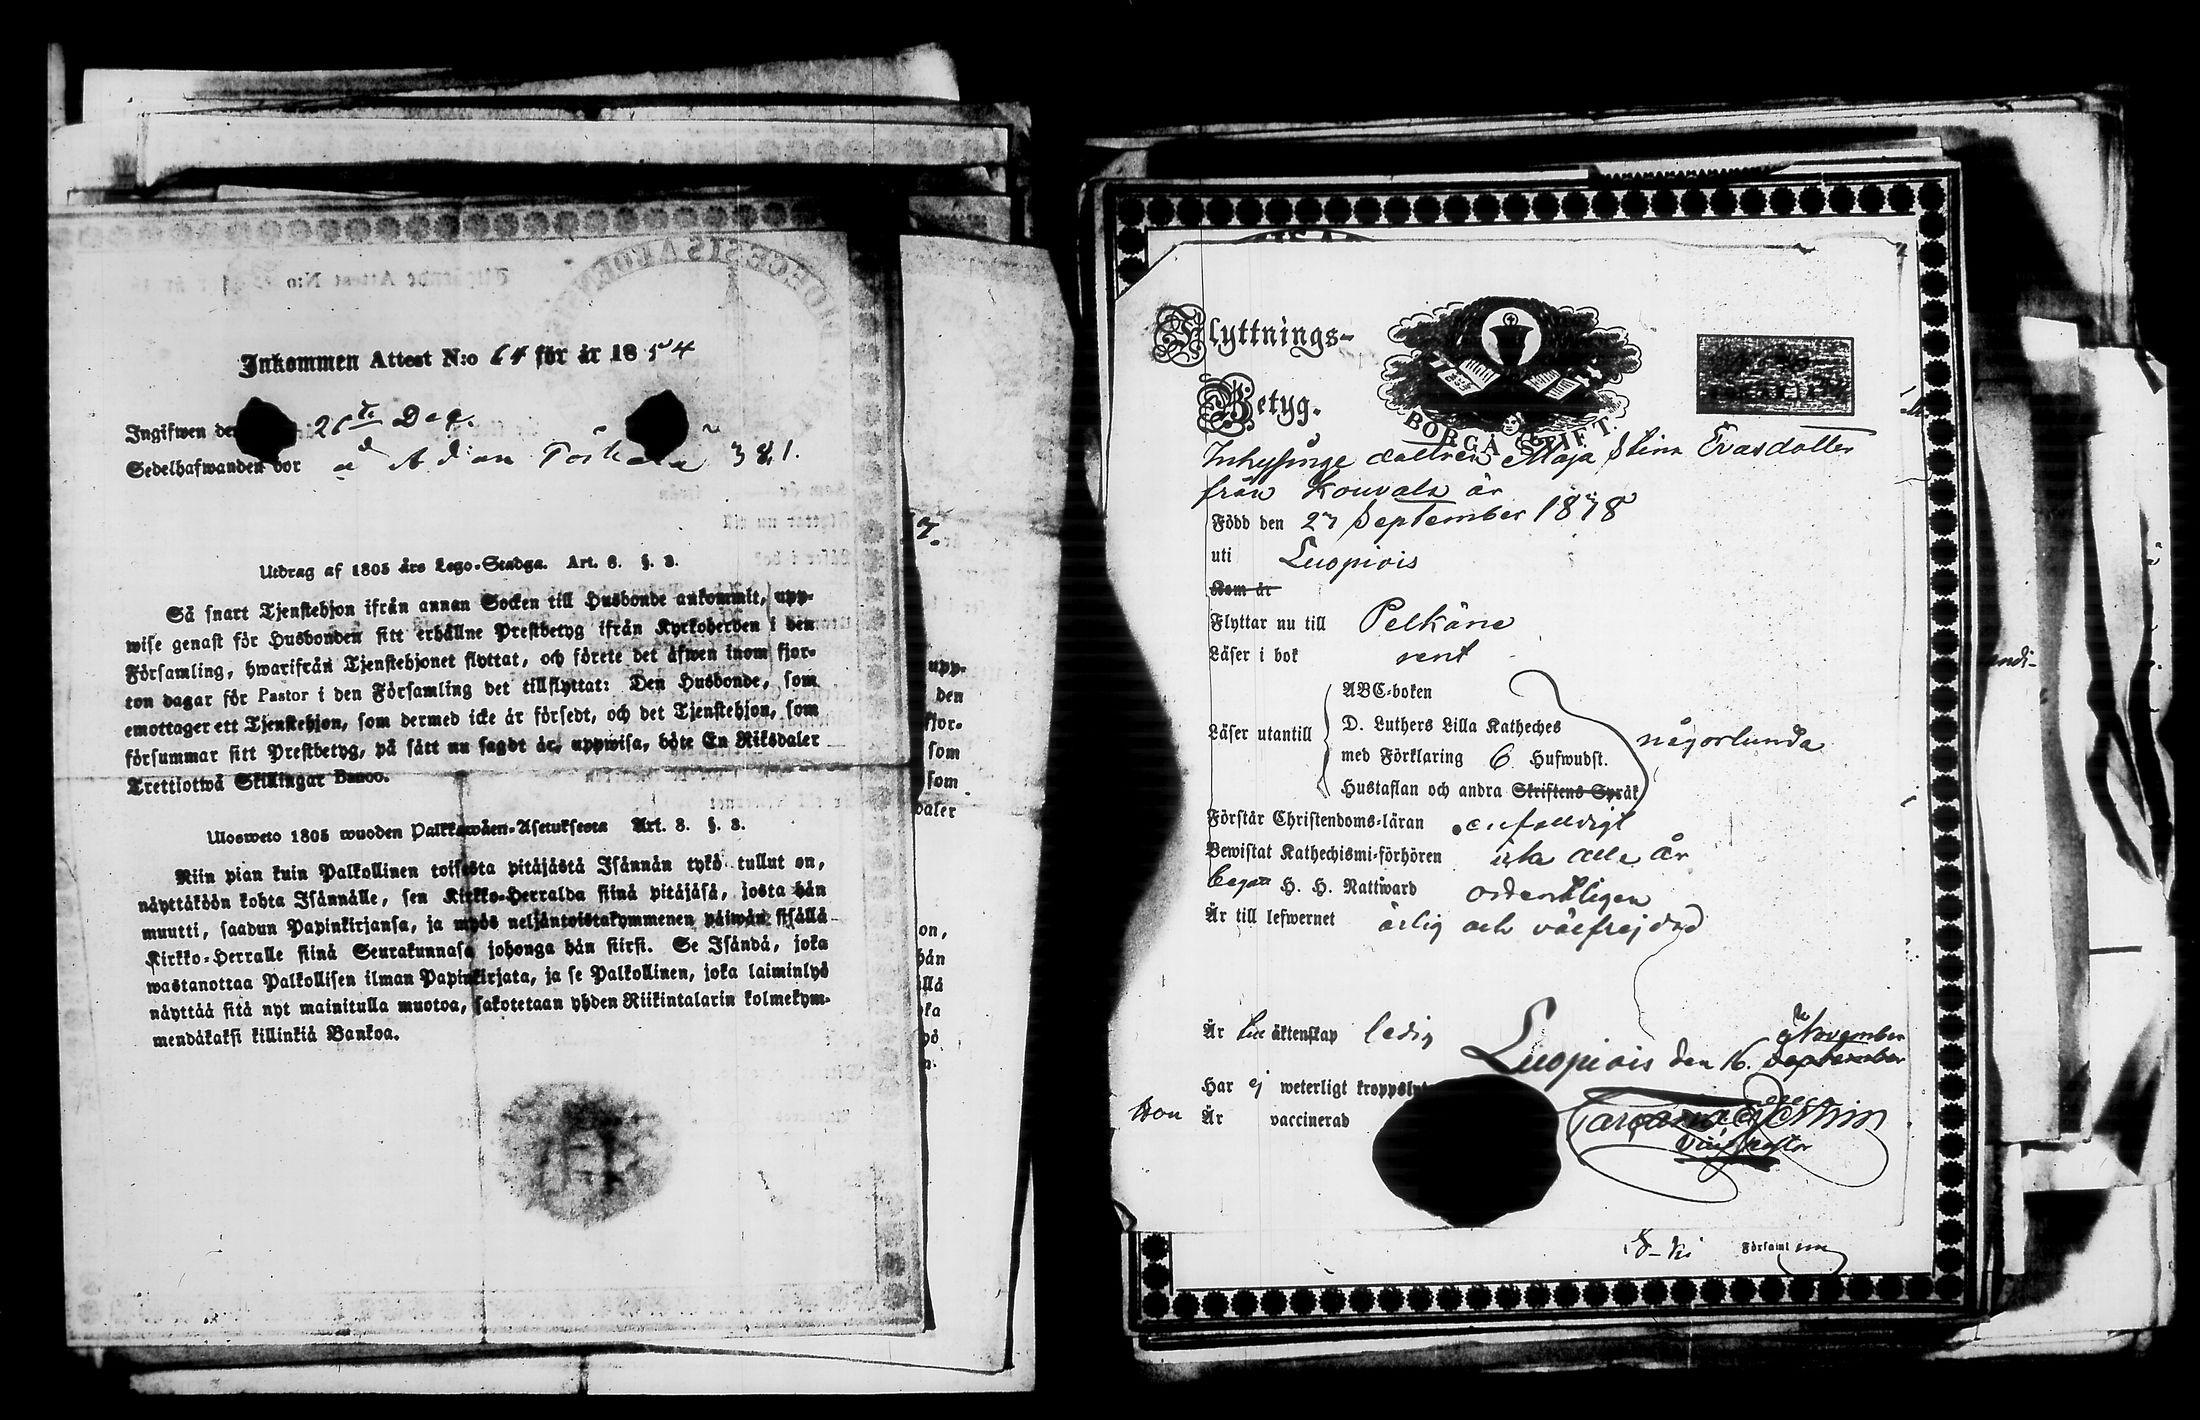 Inkommen Attest N:o 64 för år 1854
Ingifwen den 26te Dec.
Sedelhafwanden bor å 381.
Utdrag af 1805 års Lego-Stadga. Art. 8. §. 3.
Så snart Tjenstehjon ifrån annan Socken till Husbonde ankommit, upp-
wise genast för Husbonden sitt erhållne Prestbetyg ifrån Kyrkoherden i den
Församling, hwarifrån Tjenstehjonet flyttat, och förete det äfwen inom fjor-
ton dagar för Pastor i den Församling det tillflyttat: Den Husbonde, som
emottager ett Tjenstehjon, som dermed icke är försedt, och det Tjenstehjon, som
försummar sitt Prestbetyg, på sätt nu sagdt är, uppwisa, böte En Riksdaler
Trettiotwå Skillingar Banco.
Ulosweto 1805 wuoden Palkkawäen-Asetuksesta Art. 8. §. 3.
Niin pian kuin Palkollinen toisesta pitäjästä Isännän tykö tullut on,
näyttäköön kohta Isännälle, sen Kirkko-Herralda siinä pitäjäsä, josta hän
muutti, saadun Papinkirjansa, ja myös neljäntoistakymmenen päiwän sisällä
Kirkko-Herralle siinä Seurakunnasa johonga hän siirsi. Se Isändä, joka
wastanottaa Palkollisen ilman Papinkirjata, ja se Palkollinen, joka laiminlyö
näyttää sitä nyt mainitulla muotoa, sakotetaan yhden Riikintalarin kolmekym-
mendäkaksi killinkiä Bankoa.
Flyttnings-
Betyg.
BORGÅ STIFT.
Inhysinge dottren Maja Stina Evasdotter
från Kouvala är
Född den 27 September 1878
uti Luopiois
Som är
Flyttar nu till Pelkäne
Läser i bok rent
Läser utantill
ABC-boken
D. Luthers Lilla Katheches
med Förklaring 6 Hufwudst.
Hustaflan och andra Skriftens Språk
någorlunda
Förstår Christendoms-läran enfaldigt
Bewistat Kathechismi-förhören icke alla år
Begått H. H. Nattward ordentligen
Är till lefwernet ärlig och välfrejdad
Är till äktenskap ledig
Luopiois den 16. September
November
Har ej weterligt kroppslyte
Hon Är vaccinerad
Församl